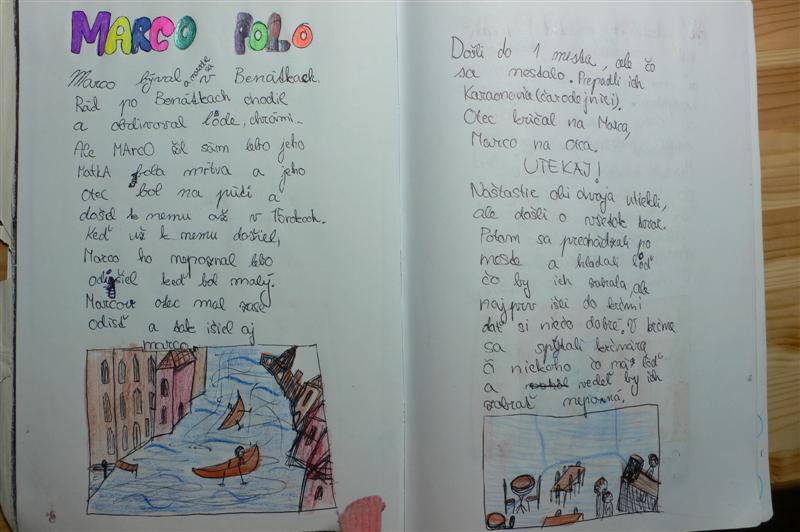 MARCO POLO
Marco býval v Benátkach.
Rád po Benátkach chodil
a obdivoval lode, chrámi...
Ale MArcO žil sám lebo jeho
MatkA bola mŕtva a jeho
otec bol na púti a
došiel k nemu až v 15rokoch.
Keď už k nemu došiel,
Marco ho nepoznal lebo
odišiel keď bol malý.
Marcov otec mal zase
odísť a tak išiel aj
marco.
Došli do 1 mesta, ale čo
sa nestalo. Prepadli ich
Karaonovia (čarodejníci).
Otec kričal na Marca,
Marco na otca.
UTEKAJ!
Naštastie obi dvaja utiekli,
ale došli o všetok tovar.
Potom sa prechádzali po
meste a hladali loď
čo by ich zobrala, ale
najprv išli do krčmi
dať si niečo dobré. V krčme
sa spýtali krčmára
či niekoho čo má loď
a vedel by ich
zobrať nepozná.